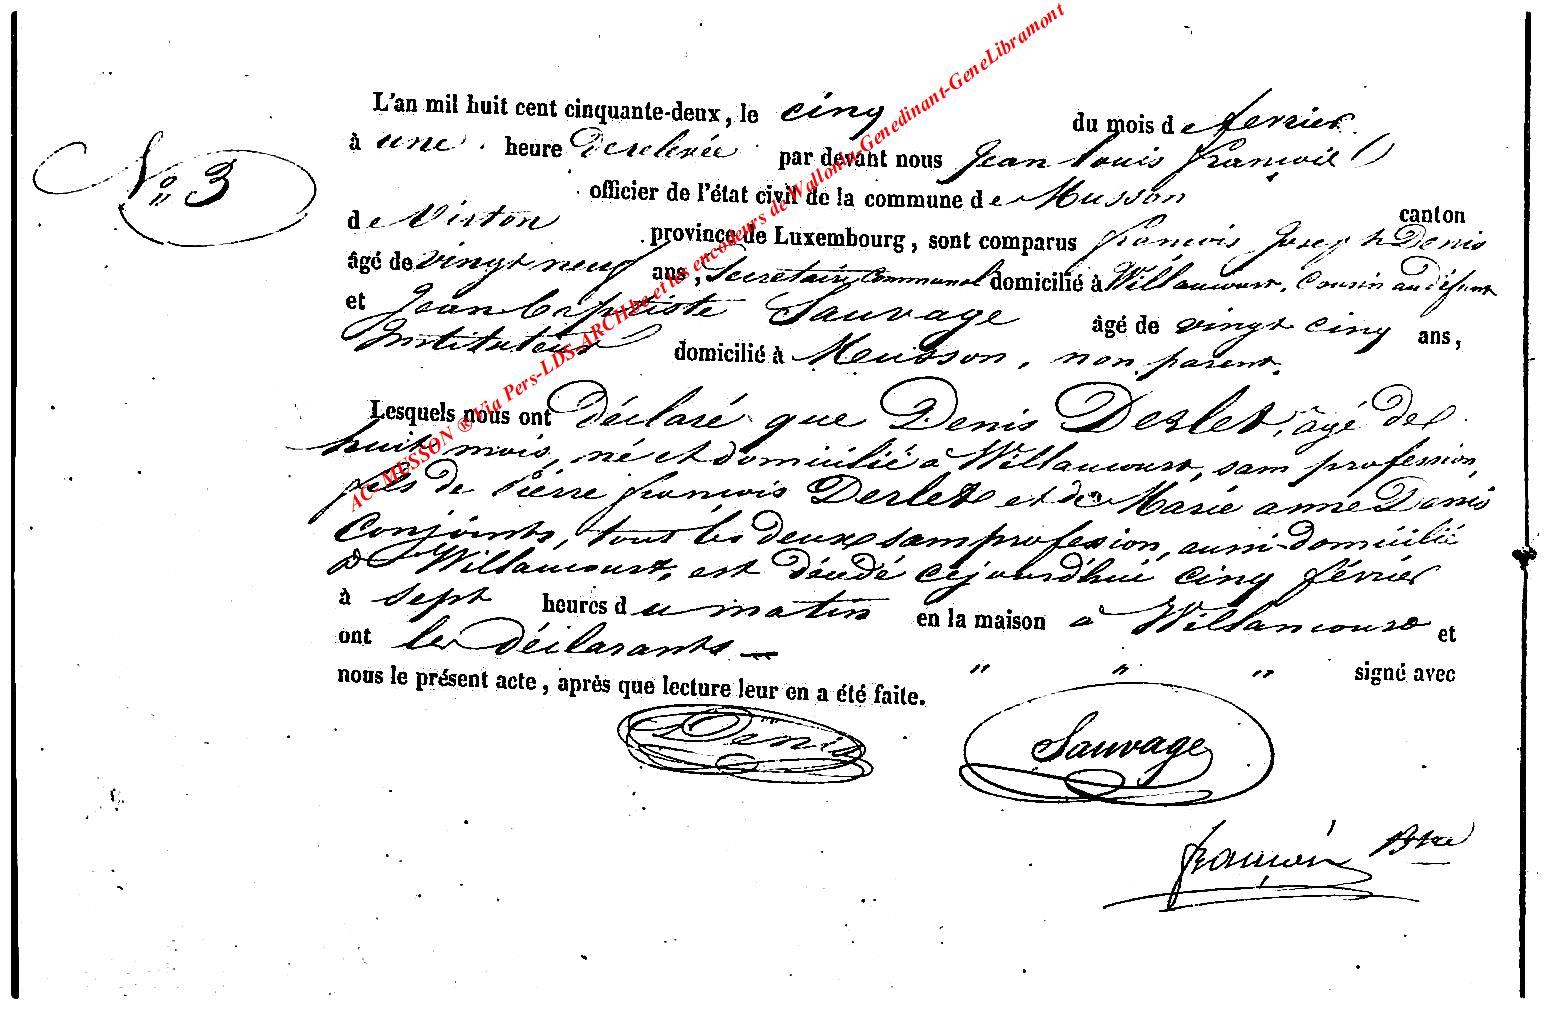 N° 3
L'an mil huit cent cinquante-deux, le cinq du mois de fevrier
à une heure de relevée par devant nous Jean Louis François
officier de l'état civil de la commune de Musson canton
de Virton province de Luxembourg, sont comparus françois Joseph Denis
âgé de vingt neuf ans, Secretaire Communal domicilié à Willancourt, Cousin au défunt
et Jean baptiste Sauvage âgé de vingt cinq ans,
Instituteur domicilié à Musson, non parent.
Lesquels nous ont déclaré que Denis Derlet, âgé de
huit mois, né et domicilié à Willancourt, sans profession,
fils de Pierre françois Derlet et de Marie anne Denis
Conjoints, tout les deux sans profession, aussi domicilié
à Willancourt, est décédé cejourd'hui cinq février
à sept heures du matin en la maison à Willancourt et
ont les déclarants — " " " signé avec
nous le présent acte, après que lecture leur en a été faite.
Denis Sauvage
françois Btre
AC-MUSSON ® Via Pers-LDS-ARCH.be et les encodeurs de Wallonia-Genedinant-GeneLibramont